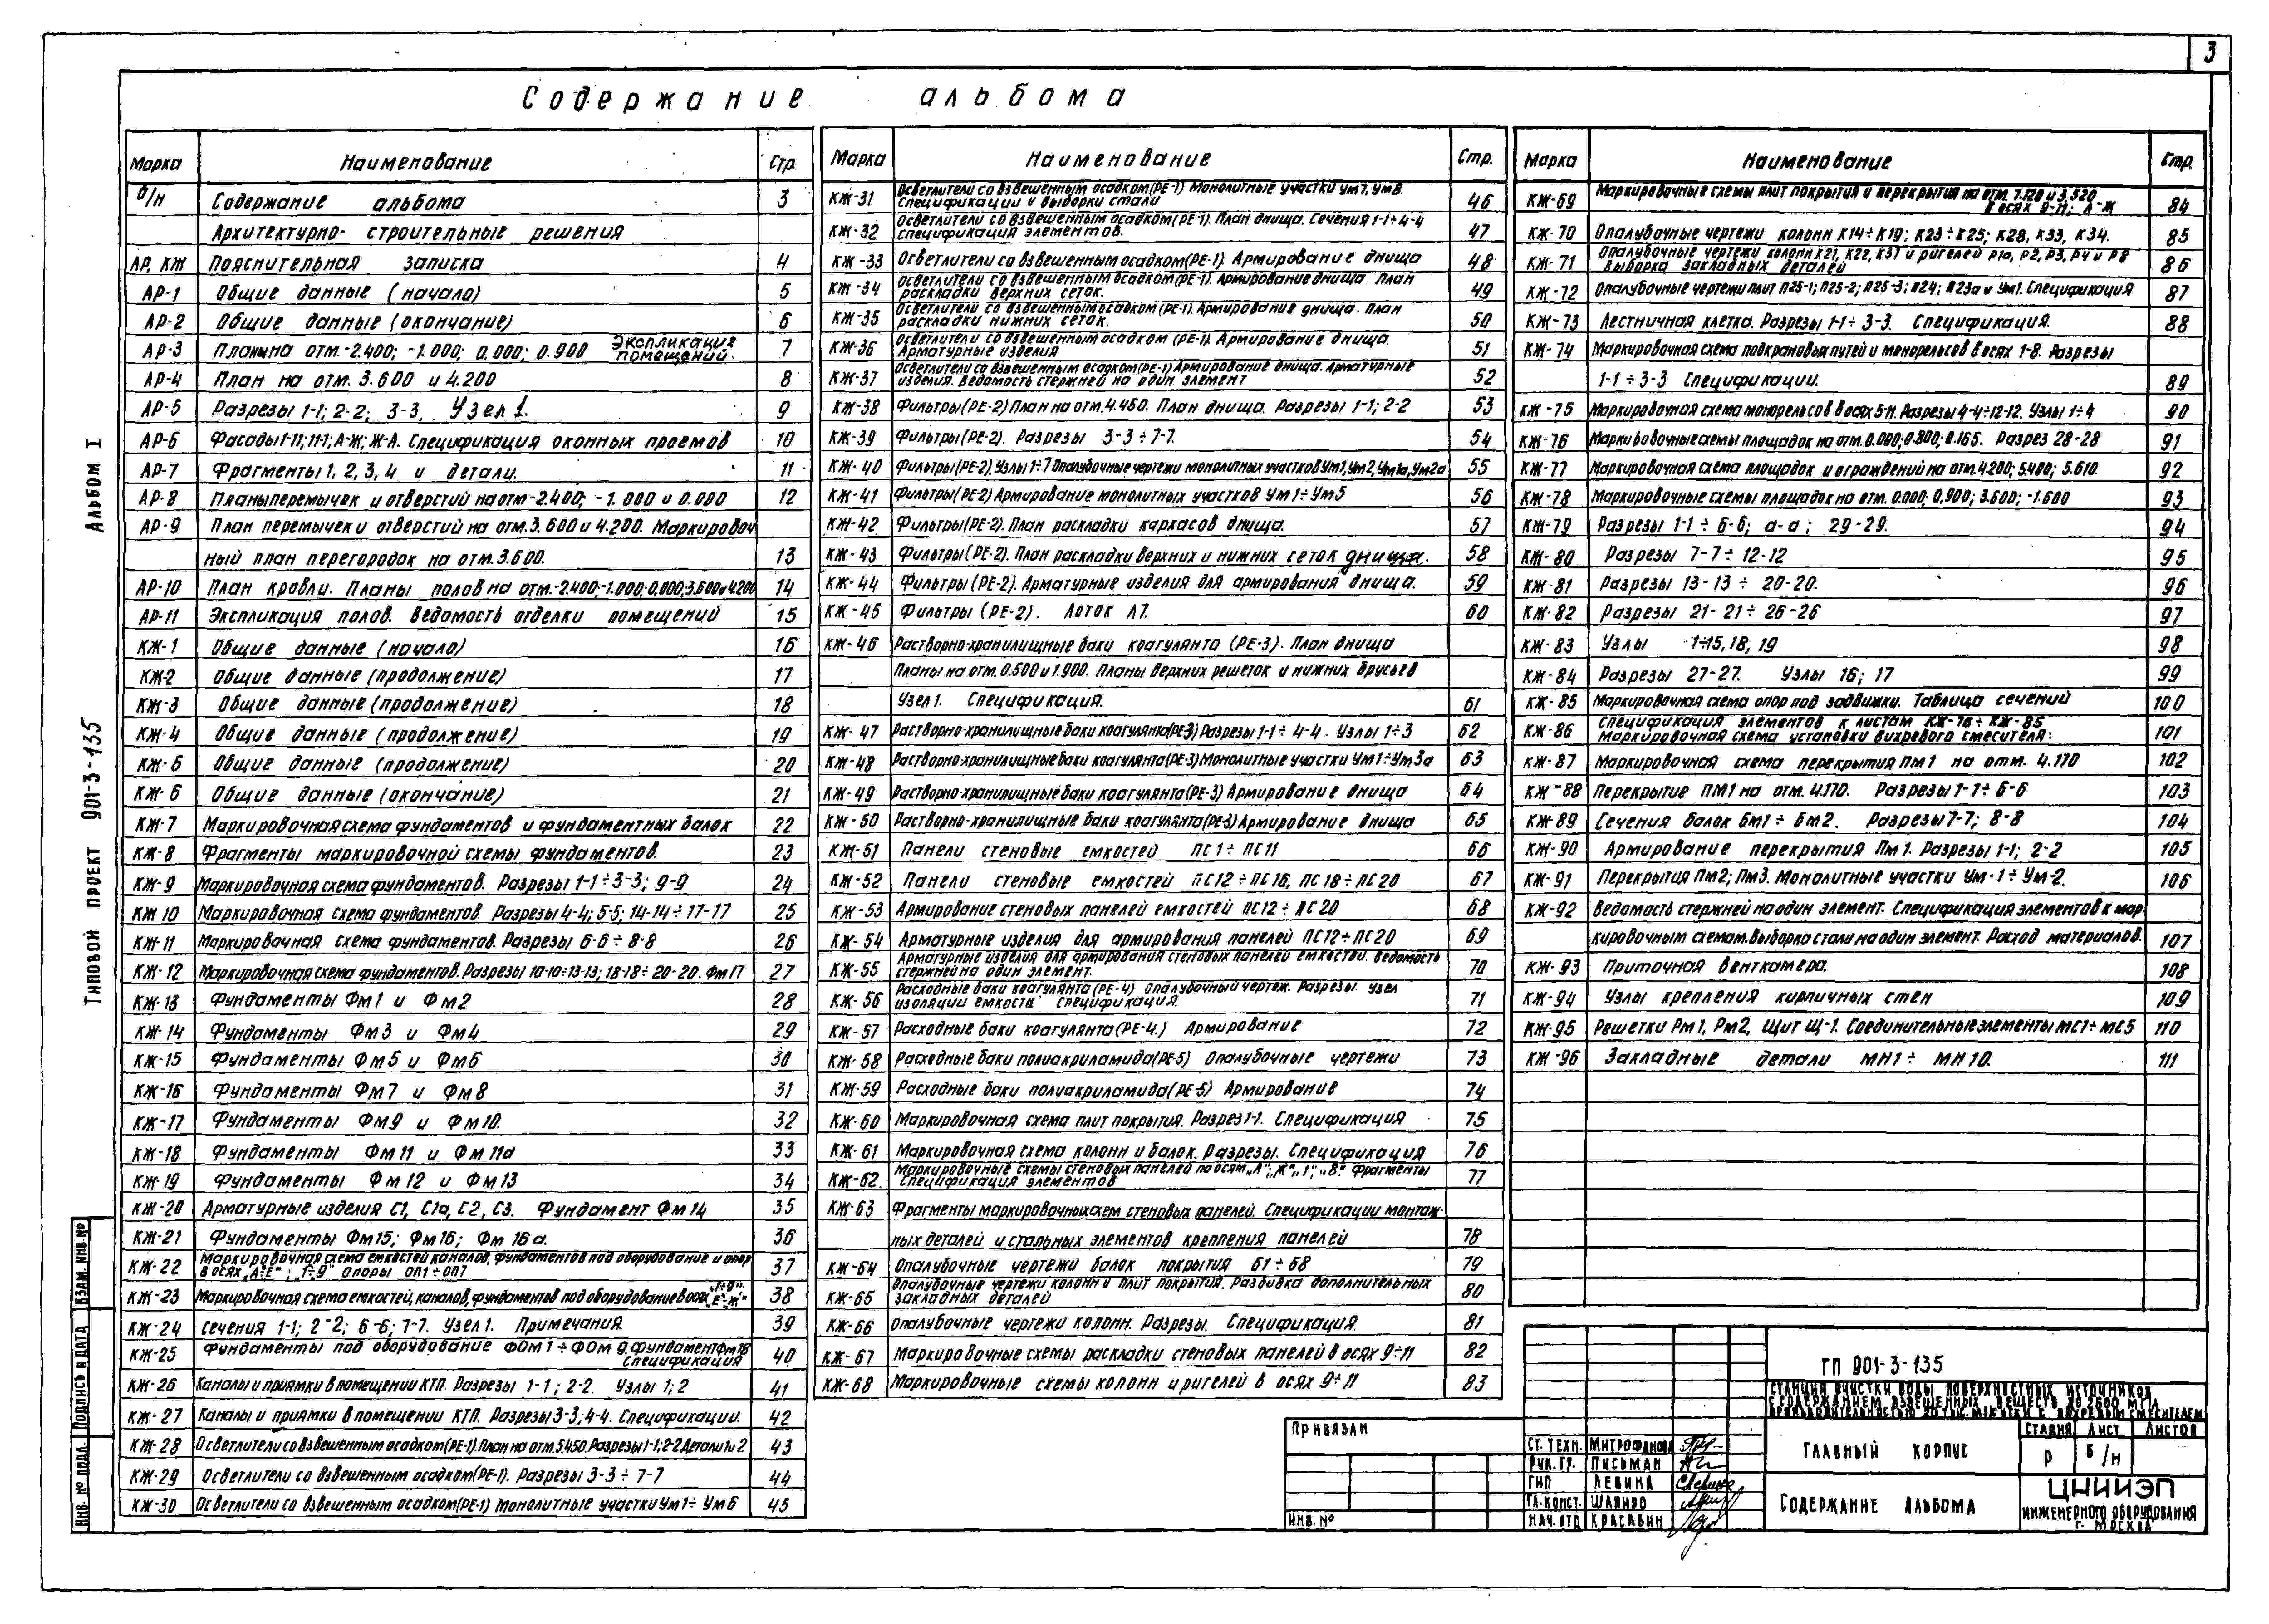 3
Содержание альбома
Марка Наименование Стр.
б/н Содержание альбома 3
Архитектурно-строительные решения
АР, КЖ Пояснительная записка 4
АР-1 Общие данные (начало) 5
АР-2 Общие данные (окончание) 6
АР-3 Планы на отм.-2.400; -1.000; 0.000; 0.900 Экспликация помещений. 7
АР-4 План на отм. 3.600 и 4.200 8
АР-5 Разрезы 1-1; 2-2; 3-3. Узел 1. 9
АР-6 Фасады 1-11; 11-1; А-Ж; Ж-А. Спецификация оконных проемов 10
АР-7 Фрагменты 1, 2, 3, 4 и детали. 11
АР-8 Планы перемычек и отверстий на отм-2.400; -1.000 и 0.000 12
АР-9 План перемычек и отверстий на отм. 3.600 и 4.200. Маркировоч
ный план перегородок на отм. 3.600. 13
АР-10 План кровли. Планы полов на отм.-2.400;-1.000;0.000;3.600и4.200 14
АР-11 Экспликация полов. Ведомость отделки помещений 15
КЖ-1 Общие данные (начало) 16
КЖ-2 Общие данные (продолжение) 17
КЖ-3 Общие данные (продолжение) 18
КЖ-4 Общие данные (продолжение) 19
КЖ-5 Общие данные (продолжение) 20
КЖ-6 Общие данные (окончание) 21
КЖ-7 Маркировочная схема фундаментов и фундаментных балок 22
КЖ-8 Фрагменты маркировочной схемы фундаментов. 23
КЖ-9 Маркировочная схема фундаментов. Разрезы 1-1÷3-3; 9-9 24
КЖ 10 Маркировочная схема фундаментов. Разрезы 4-4; 5-5; 14-14÷17-17 25
КЖ-11 Маркировочная схема фундаментов. Разрезы 6-6÷8-8 26
КЖ-12 Маркировочная схема фундаментов. Разрезы 10-10÷13-13; 18-18÷20-20. Фм 17 27
КЖ-13 Фундаменты Фм1 и Фм2 28
КЖ-14 Фундаменты Фм3 и Фм4 29
КЖ-15 Фундаменты Фм5 и Фм6 30
КЖ-16 Фундаменты Фм7 и Фм8 31
КЖ-17 Фундаменты Фм9 и Фм10. 32
КЖ-18 Фундаменты Фм11 и Фм11а 33
КЖ-19 Фундаменты Фм12 и Фм13 34
КЖ-20 Арматурные изделия С1, С1а, С2, С3. Фундамент Фм14 35
КЖ-21 Фундаменты Фм15; Фм16; Фм 16а. 36
КЖ-22 Маркировочная схема емкостей каналов, фундаментов под оборудование и опор
в осях „А÷Е"; „1÷9" опоры оп1÷оп7 37
КЖ-23 Маркировочная схема емкостей, каналов, фундаментов под оборудование в осях „1÷9". „Е÷Ж" 38
КЖ-24 Сечения 1-1; 2-2; 6-6; 7-7. Узел 1. Примечания. 39
КЖ-25 Фундаменты под оборудование ФОм1÷ФОм 9. Фундамент Фм18
Спецификация 40
КЖ-26 Каналы и приямки в помещении КТП. Разрезы 1-1; 2-2. Узлы 1; 2 41
КЖ-27 Каналы и приямки в помещении КТП. Разрезы 3-3; 4-4. Спецификации. 42
КЖ-28 Осветлители со взвешенным осадком (РЕ-1). План на отм. 5.450. Разрезы 1-1; 2-2 Детали 1 и 2 43
КЖ-29 Осветлители со взвешенным осадком (РЕ-1). Разрезы 3-3÷7-7 44
КЖ-30 Осветлители со взвешенным осадком (РЕ-1) Монолитные участки Ум1÷Ум6 45
Марка Наименование Стр.
КЖ-31 Осветлители со взвешенным осадком (РЕ-1) Монолитные участки Ум7, Ум8.
Спецификации и выборки стали 46
КЖ-32 Осветлители со взвешенным осадком (РЕ-1). План днища. Сечения 1-1÷4-4
Спецификация элементов. 47
КЖ-33 Осветлители со взвешенным осадком (РЕ-1). Армирование днища 48
КЖ-34 Осветлители со взвешенным осадком (РЕ-1). Армирование днища. План
раскладки верхних сеток. 49
КЖ-35 Осветлители со взвешенным осадком (РЕ-1). Армирование днища. План
раскладки нижних сеток. 50
КЖ-36 Осветлители со взвешенным осадком (РЕ-1). Армирование днища.
Арматурные изделия 51
КЖ-37 Осветлители со взвешенным осадком (РЕ-1) Армирование днища. Арматурные
изделия. Ведомость стержней на один элемент 52
КЖ-38 Фильтры (РЕ-2) План на отм. 4.450. План днища. Разрезы 1-1; 2-2 53
КЖ-39 Фильтры (РЕ-2). Разрезы 3-3÷7-7. 54
КЖ-40 Фильтры (РЕ-2). Узлы 1÷7 Опалубочные чертежи монолитных участков Ум1, Ум2, Ум1а, Ум2а 55
КЖ-41 Фильтры (РЕ-2) Армирование монолитных участков Ум1÷Ум5 56
КЖ-42 Фильтры (РЕ-2). План раскладки каркасов днища. 57
КЖ-43 Фильтры (РЕ-2). План раскладки верхних и нижних сеток днища. 58
КЖ-44 Фильтры (РЕ-2). Арматурные изделия для армирования днища. 59
КЖ-45 Фильтры (РЕ-2). Лоток Л7. 60
КЖ-46 Растворно-хранилищные баки коагулянта (РЕ-3). План днища
Планы на отм. 0.500 и 1.900. Планы верхних решеток и нижних брусьев
Узел 1. Спецификация. 61
КЖ-47 Растворно-хранилищные баки коагулянта (РЕ-3) Разрезы 1-1÷4-4. Узлы 1÷3 62
КЖ-48 Растворно-хранилищные баки коагулянта (РЕ-3) Монолитные участки Ум1÷Ум3а 63
КЖ-49 Растворно-хранилищные баки коагулянта (РЕ-3) Армирование днища 64
КЖ-50 Растворно-хранилищные баки коагулянта (РЕ-3) Армирование днища 65
КЖ-51 Панели стеновые емкостей ПС1÷ПС11 66
КЖ-52 Панели стеновые емкостей ПС12÷ПС16, ПС18÷ПС20 67
КЖ-53 Армирование стеновых панелей емкостей ПС12÷ПС20 68
КЖ-54 Арматурные изделия для армирования панелей ПС12÷ПС20 69
КЖ-55 Арматурные изделия для армирования стеновых панелей емкостей. Ведомость
стержней на один элемент. 70
КЖ-56 Расходные баки коагулянта (РЕ-4) Опалубочный чертеж. Разрезы. Узел
изоляции емкости Спецификация. 71
КЖ-57 Расходные баки коагулянта (РЕ-4.) Армирование 72
КЖ-58 Расходные баки полиакриламида (РЕ-5) Опалубочные чертежи 73
КЖ-59 Расходные баки полиакриламида (РЕ-5) Армирование 74
КЖ-60 Маркировочная схема плит покрытия. Разрез 1-1. Спецификация 75
КЖ-61 Маркировочная схема колонн и балок. Разрезы. Спецификация 76
КЖ-62. Маркировочные схемы стеновых панелей по осям „А", „Ж", „1", „8". Фрагменты
Спецификация элементов 77
КЖ-63 Фрагменты маркировочных схем стеновых панелей. Спецификации монтаж-
ных деталей и стальных элементов крепления панелей 78
КЖ-64 Опалубочные чертежи балок покрытия Б1÷Б8 79
КЖ-65 Опалубочные чертежи колонн и плит покрытия. Разбивка дополнительных
закладных деталей 80
КЖ-66 Опалубочные чертежи колонн. Разрезы. Спецификация. 81
КЖ-67 Маркировочные схемы раскладки стеновых панелей в осях 9÷11 82
КЖ-68 Маркировочные схемы колонн и ригелей в осях 9÷11 83
Марка Наименование Стр.
КЖ-69 Маркировочные схемы плит покрытия и перекрытия на отм. 7.120 и 3.520
в осях 9-11; А-Ж 84
КЖ-70 Опалубочные чертежи колонн К14÷К19; К23÷К25; К28, К33, К34. 85
КЖ-71 Опалубочные чертежи колонн К21, К22, К37 и ригелей Р1а, Р2, Р3, Р4 и Р8
Выборка закладных деталей 86
КЖ-72 Опалубочные чертежи плит П25-1; П25-2; П25-3; П24; П23а и Ум1. Спецификация 87
КЖ-73 Лестничная клетка. Разрезы 1-1÷3-3. Спецификация. 88
КЖ-74 Маркировочная схема подкрановых путей и монорельсов в осях 1-8. Разрезы
1-1÷3-3 Спецификации. 89
КЖ-75 Маркировочная схема монорельсов в осях 5-11. Разрезы 4-4÷12-12. Узлы 1÷4 90
КЖ-76 Маркировочные схемы площадок на отм. 0.000; 0.800; 0.165. Разрез 28-28 91
КЖ-77 Маркировочная схема площадок и ограждений на отм. 4.200; 5.400; 5.610. 92
КЖ-78 Маркировочные схемы площадок на отм. 0.000; 0,900; 3.600; -1.600 93
КЖ-79 Разрезы 1-1÷6-6; а-а; 29-29. 94
КЖ-80 Разрезы 7-7÷12-12 95
КЖ-81 Разрезы 13-13÷20-20. 96
КЖ-82 Разрезы 21-21÷26-26 97
КЖ-83 Узлы 1÷15, 18, 19 98
КЖ-84 Разрезы 27-27. Узлы 16; 17 99
КЖ-85 Маркировочная схема опор под задвижки. Таблица сечений 100
КЖ-86 Спецификация элементов к листам КЖ-76÷КЖ-85
Маркировочная схема установки вихревого смесителя. 101
КЖ-87 Маркировочная схема перекрытия Пм1 на отм. 4.170 102
КЖ-88 Перекрытие ПМ1 на отм. 4.170. Разрезы 1-1÷6-6 103
КЖ-89 Сечения балок Бм1÷Бм2. Разрезы 7-7; 8-8 104
КЖ-90 Армирование перекрытия Пм1. Разрезы 1-1; 2-2 105
КЖ-91 Перекрытия Пм2; Пм3. Монолитные участки Ум-1÷Ум-2. 106
КЖ-92 Ведомость стержней на один элемент. Спецификация элементов к мар-
кировочным схемам. Выборка стали на один элемент. Расход материалов. 107
КЖ-93 Приточная венткамера. 108
КЖ-94 Узлы крепления кирпичных стен 109
КЖ-95 Решетки Рм1, Рм2, Щит Щ-1. Соединительные элементы МС1÷МС5 110
КЖ-96 Закладные детали МН1÷МН10. 111
Альбом I
Типовой проект 901-3-135
Взам. инв. №
Подпись и дата
Инв. № подл.
Привязан
Инв. №
Ст. техн. Митрофанова
Рук. гр. Письман
ГИП Левина
Гл. конст. Шапиро
Нач. отд Красавин
ТП 901-3-135
Станция очистки воды поверхностных источников
с содержанием взвешенных веществ до 2500 мг/л
производительностью 20 тыс. м3/сутки с вихревым смесителем
Главный корпус
Стадия Лист Листов
Р б/н
Содержание альбома
ЦНИИЭП
инженерного оборудования
г. Москва